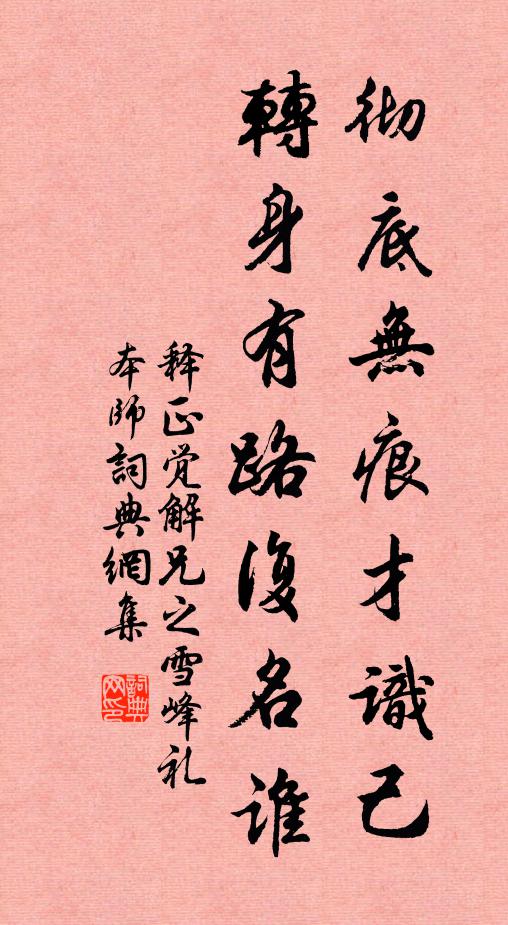 彻底無痕才識己
轉身有路復名誰
释正觉解兄之雪峰礼
本師詞典網集
詞典
网印